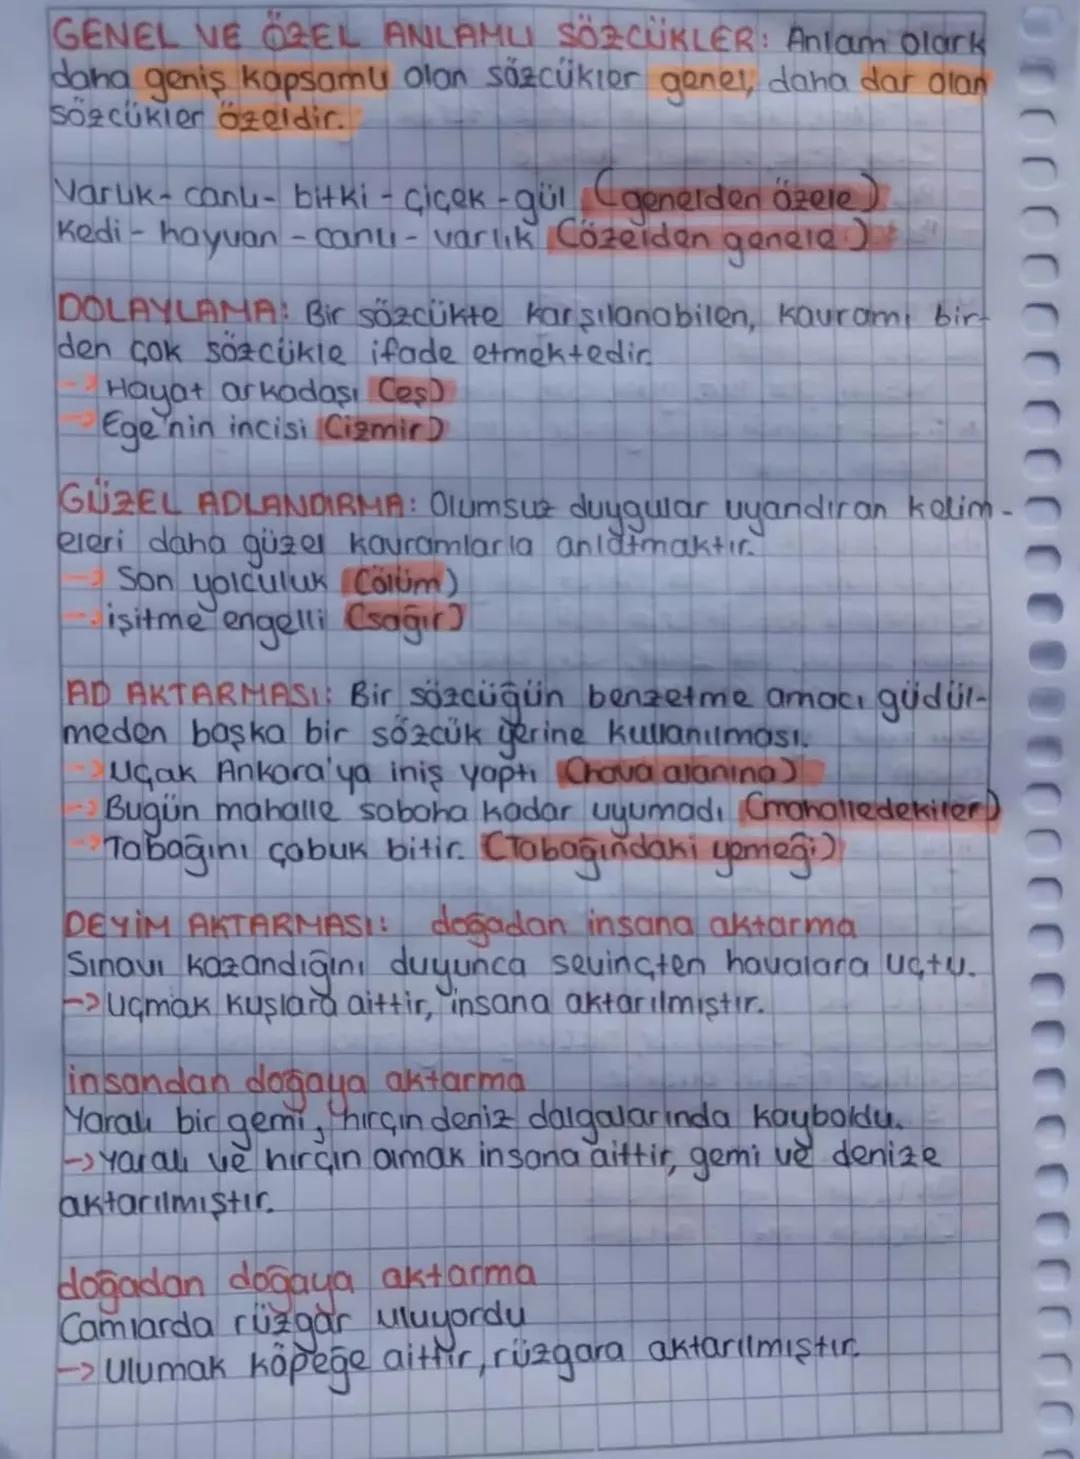 GENEL VE ÖZEL ANLAMLI SÖZCÜKLER: Anlam olark
daha geniş kapsamlı olan sözcükler genel, daha dar olan
sözcükler özeldir.
Varlık - canlı - bitki - çiçek - gül (genelden özele)
Kedi - hayvan - canlı - varlık (özelden genele)
DOLAYLAMA: Bir sözcükte karşılanabilen, kavramı bir-
den çok sözcükle ifade etmektedir.
-> Hayat arkadaşı (eş)
-> Ege'nin incisi (izmir)
GÜZEL ADLANDIRMA: Olumsuz duygular uyandıran kelim-
eleri daha güzel kavramlarla anlatmaktır.
-> Son yolculuk (ölüm)
-> işitme engelli (sağır)
AD AKTARMASI: Bir sözcüğün benzetme amacı güdül-
meden başka bir sözcük yerine kullanılması.
-> Uçak Ankara'ya iniş yaptı (hava alanına)
-> Bugün mahalle sabaha kadar uyumadı (mahalledekiler)
-> Tabağını çabuk bitir. (Tabağındaki yemeği)
DEYİM AKTARMASI: doğadan insana aktarma
Sınavı kazandığını duyunca sevinçten havalara uçtu.
-> Uçmak kuşlara aittir, insana aktarılmıştır.
insandan doğaya aktarma
Yaralı bir gemi, hırçın deniz dalgalarında kayboldu.
-> yaralı ve hırçın olmak insana aittir, gemi ve denize
aktarılmıştır.
doğadan doğaya aktarma
Camlarda rüzgar uluyordu
-> Ulumak köpeğe aittir, rüzgara aktarılmıştır.